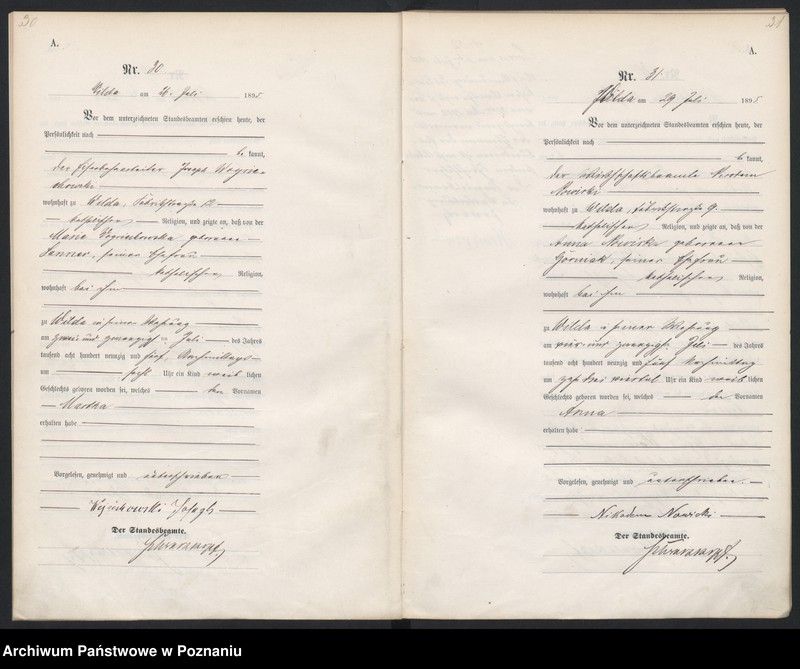 30
A.
Nr. 30
Wilda am 26. Juli 1895
Vor dem unterzeichneten Standesbeamten erschien heute, der
Persönlichkeit nach
be kannt,
der Joseph
wohnhaft zu Wilda, Fabrikstraße 12
katholischer Religion, und zeigte an, daß von der
Marie geborene
seiner Ehefrau
katholischer Religion,
wohnhaft bei ihm
zu Wilda in seiner Wohnung
am zwei und zwanzigsten Juli des Jahres
tausend acht hundert neunzig und fünf, Nachmittags
um sechs Uhr ein Kind weib lichen
Geschlechts geboren worden sei, welches den Vornamen
Martha
erhalten habe
Vorgelesen, genehmigt und unterschrieben
Wojciechowski Joseph
Der Standesbeamte.
31
A.
Nr. 31
Wilda am 29 Juli 1895
Vor dem unterzeichneten Standesbeamten erschien heute, der
Persönlichkeit nach
be kannt,
der
Nowicki
wohnhaft zu Wilda, Fabrikstraße 9.
katholischer Religion, und zeigte an, daß von der
Anna Nowicka geborenen
Górniak, seiner Ehefrau
katholischer Religion,
wohnhaft bei ihm
zu Wilda in seiner Wohnung
am vier und zwanzigsten Juli des Jahres
tausend acht hundert neunzig und fünf Nachmittag
um drei viertel Uhr ein Kind weib lichen
Geschlechts geboren worden sei, welches den Vornamen
Anna
erhalten habe
Vorgelesen, genehmigt und unterschrieben.
Nikodem Nowicki
Der Standesbeamte.
Archiwum Państwowe w Poznaniu